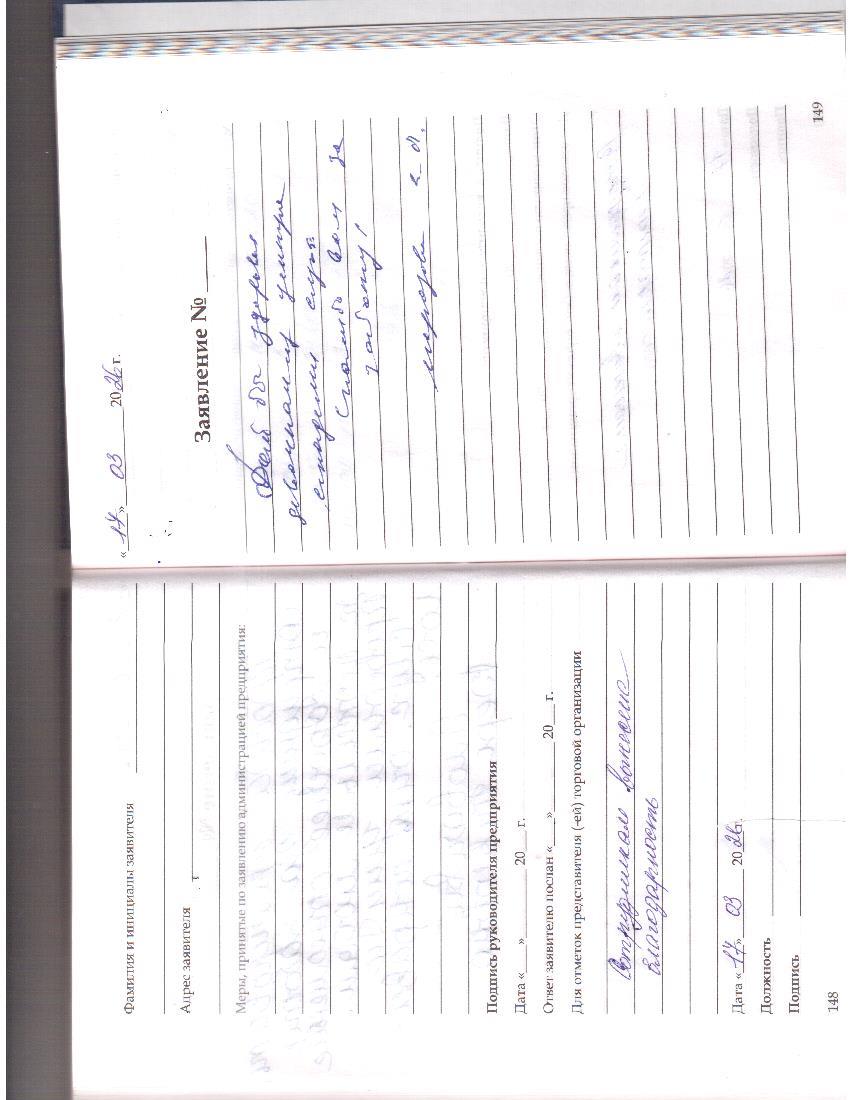 Фамилия и инициалы заявителя
Адрес заявителя
Меры, принятые по заявлению администрацией предприятия:
Подпись руководителя предприятия
Дата « » 20 г.
Ответ заявителю послан « » 20 г.
Для отметок представителя (-ей) торговой организации
Сотрудникам вынесена
благодарность
Дата «17» 03 2026г.
Должность
Подпись
148
«17» 03 2026 г.
Заявление №
здоровья
девочкам
Спасибо вам за
заботу!
149